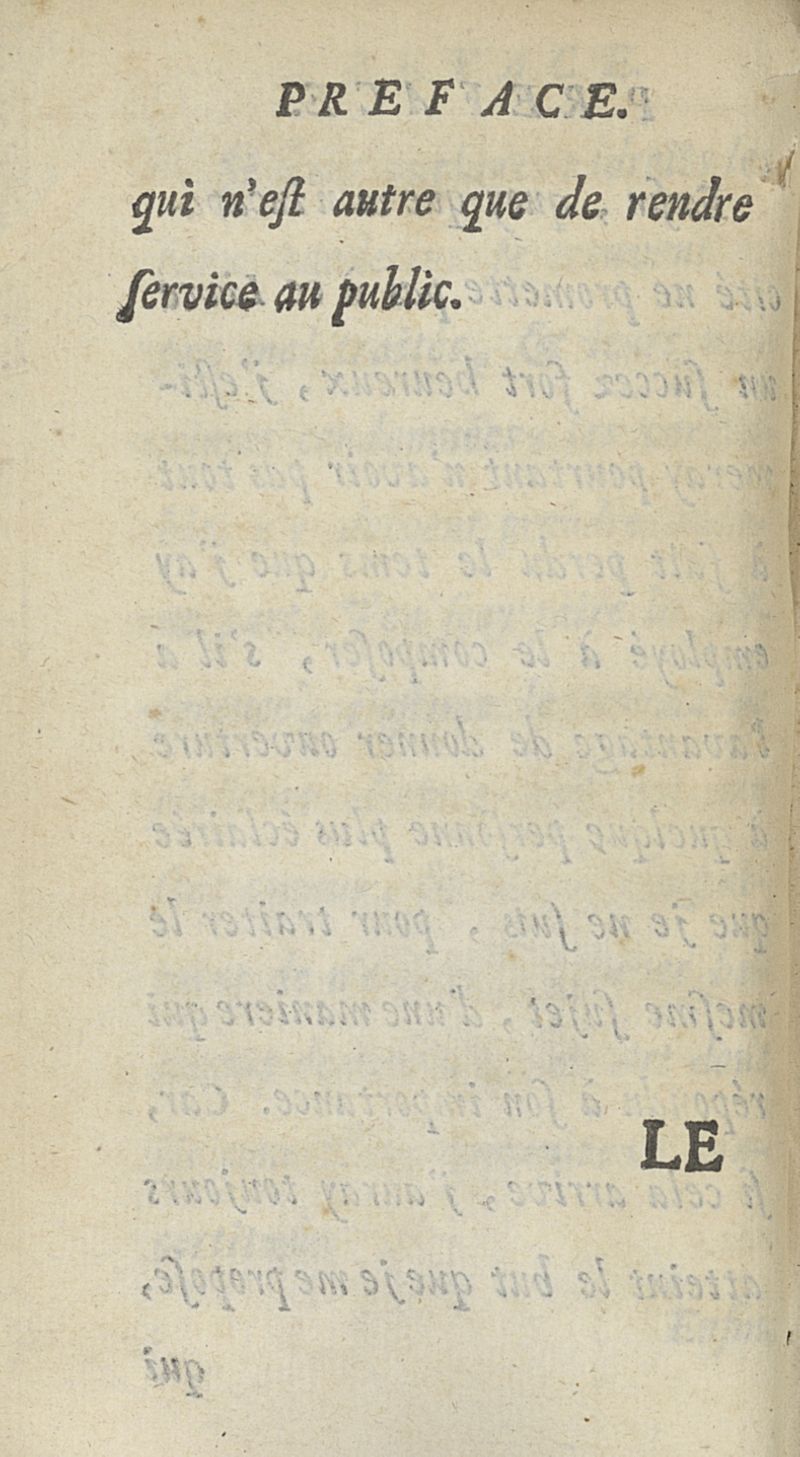 PREFACE.
qui n'eſt autre que de rendre
ſervice au public.
LE